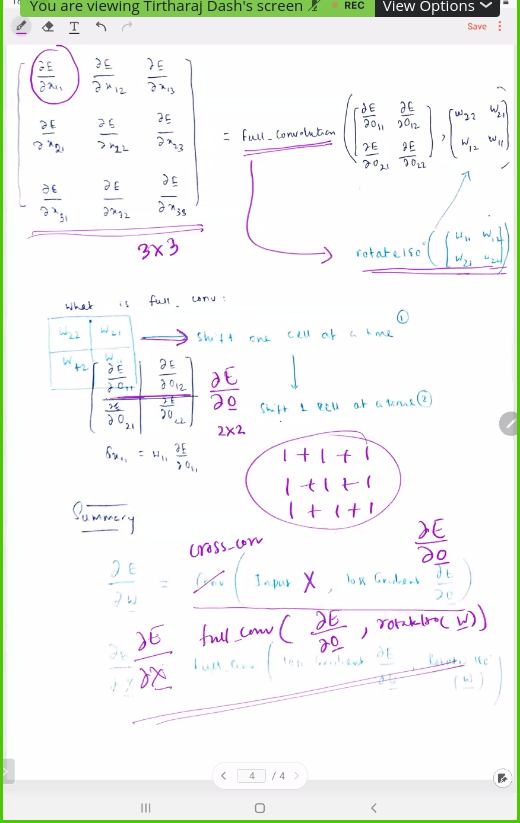 You are viewing Tirtharaj Dash's screen REC View Options
T Save
∂E/∂x₁₁ ∂E/∂x₁₂ ∂E/∂x₁₃
∂E/∂x₂₁ ∂E/∂x₂₂ ∂E/∂x₂₃
∂E/∂x₃₁ ∂E/∂x₃₂ ∂E/∂x₃₃
= full_convolution ( ∂E/∂O₁₁ ∂E/∂O₁₂ ∂E/∂O₂₁ ∂E/∂O₂₂ , w₂₂ w₂₁ w₁₂ w₁₁ )
3x3
rotate180 ( w₁₁ w₁₂ w₂₁ w₂₂ )
What is full_conv:
w₂₂ w₂₁ shift one cell at a time ①
w₁₂ w
∂E/∂O₁₁ ∂E/∂O₁₂ ∂E/∂O
∂E/∂O₂₁ ∂E/∂O₂₂ shift 1 cell at a time ②
2x2
δx₁₁ = w₁₁ ∂E/∂O₁₁
1+1+1
1+1+1
1+1+1
Summary
cross_conv ∂E/∂O
∂E/∂W = Conv ( Input X, loss Gradient ∂E/∂O )
∂E/∂X full_conv ( ∂E/∂O , rotate180(W))
full_conv ( loss Gradient ∂E , Rotate 180 (W) )
< 4 / 4 >